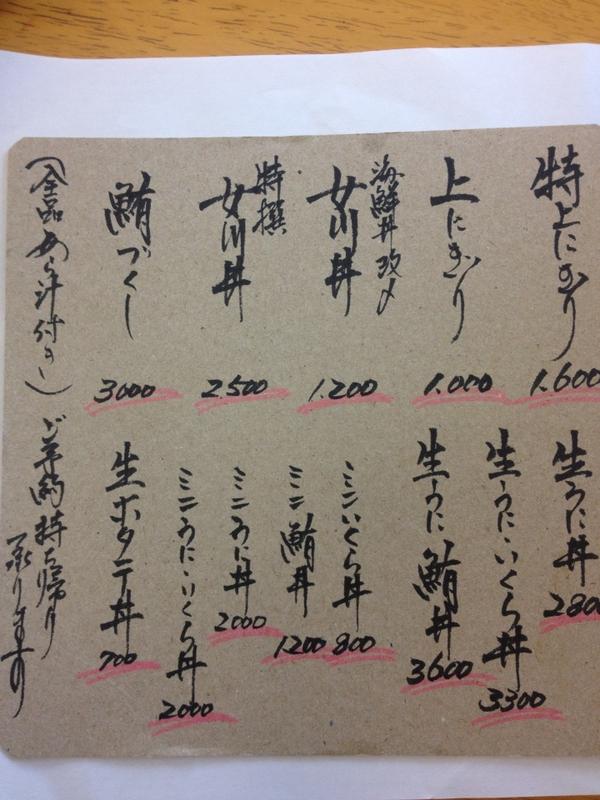 特上にぎり
1.600
上にぎり
1.000
海鮮丼改メ
女川丼
1.200
特撰
女川丼
2.500
鮪づくし
3000
(全品あら汁付き)
生うに丼
280
生うに・いくら丼
3300
生うに鮪丼
3600
ミニいくら丼
800
ミニ鮪丼
1200
ミニうに丼
2000
ミニうに・いくら丼
2000
生ホタテ丼
700
ご予約持ち帰り
承ります